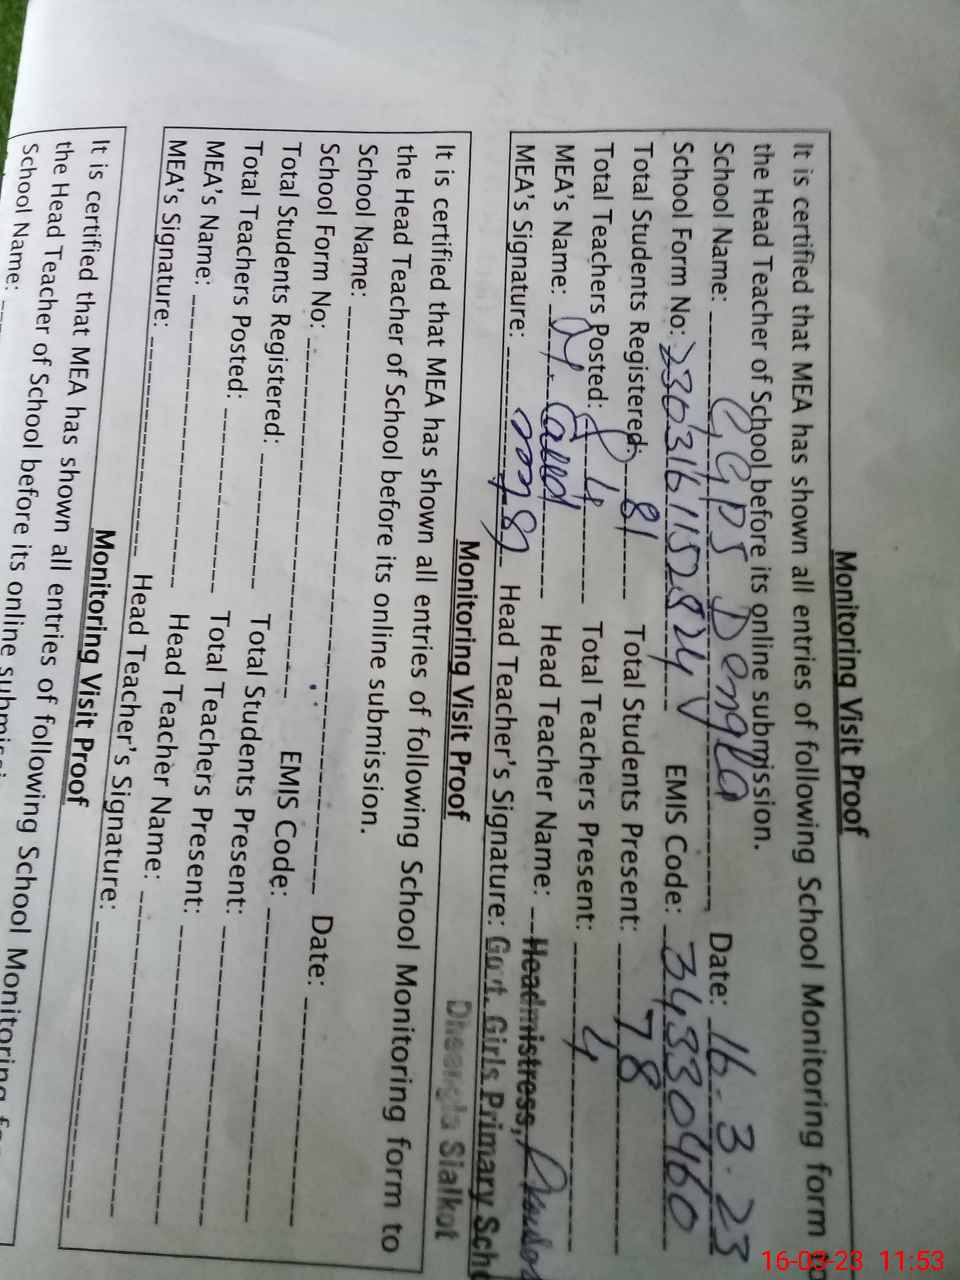 Monitoring Visit Proof
It is certified that MEA has shown all entries of following School Monitoring form to
the Head Teacher of School before its online submission.
School Name: GGPS Dengla Date: 16.3.23
School Form No: 2303161152824V EMIS Code: 34330460
Total Students Registered: 81 Total Students Present: 78
Total Teachers Posted: 4 Total Teachers Present: 4
MEA's Name: Head Teacher Name: Headmistress,
MEA's Signature: Head Teacher's Signature: Govt. Girls Primary Sch
Sialkot
Monitoring Visit Proof
It is certified that MEA has shown all entries of following School Monitoring form to
the Head Teacher of School before its online submission.
School Name: Date:
School Form No: EMIS Code:
Total Students Registered: Total Students Present:
Total Teachers Posted: Total Teachers Present:
MEA's Name: Head Teacher Name:
MEA's Signature: Head Teacher's Signature:
Monitoring Visit Proof
It is certified that MEA has shown all entries of following School Monitoring
the Head Teacher of School before its online
School Name:
16-03-23 11:53